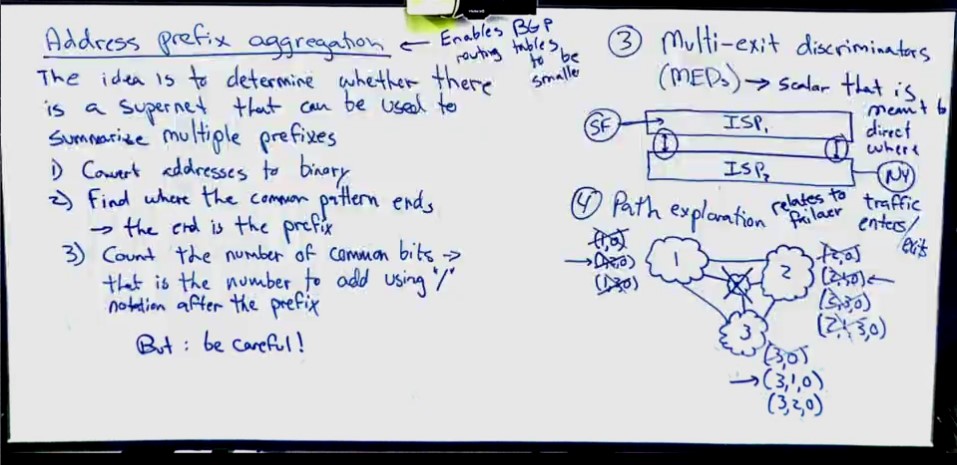 Address prefix aggregation ← Enables BGP
routing tables
to be
smaller
The idea is to determine whether there
is a supernet that can be used to
summarize multiple prefixes
1) Convert addresses to binary
2) Find where the common pattern ends
→ the end is the prefix
3) Count the number of common bits →
that is the number to add using "/"
notation after the prefix
But: be careful!
③ Multi-exit discriminators
(MEDs) → scalar that is
meant to
direct
where
traffic
enters/
exits
SF
ISP₁
I
I
ISP₂
NY
④ Path exploration relates to
failuer
(1,0)
→
(1,3,0)
1
2
3
(2,0)
(2,1,0) ←
(2,3,0)
(2,1,3,0)
(3,0)
→ (3,1,0)
(3,2,0)